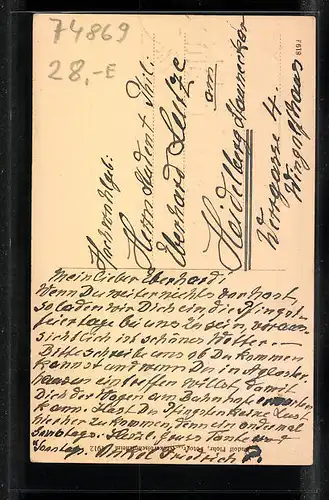 74869
28,-E
7619
Hochwohlgeb.
Herrn Student Phil.
Eberhard Lutze
am
Heidelberg
Herrgasse 4.
Wingolfhaus
Mein lieber Eberhard!
Wenn Du weiter nichts vor hast,
so laden wir Dich ein, die Pfingst-
feiertage bei uns zu sein, voraus-
sichtlich ist schönes Wetter. -
Bitte schreibe uns ob Du kommen
kannst und wann Du in Aglaster-
hausen eintreffen willst, damit
Dich der Wagen am Bahnhofe erwarten
kann. Hast Du Pfingsten keine Lust
hierher zu kommen, denn ein andermal
Samstags. Herzl. Gruss Tante und
Sonntag. Onkel Friedrich